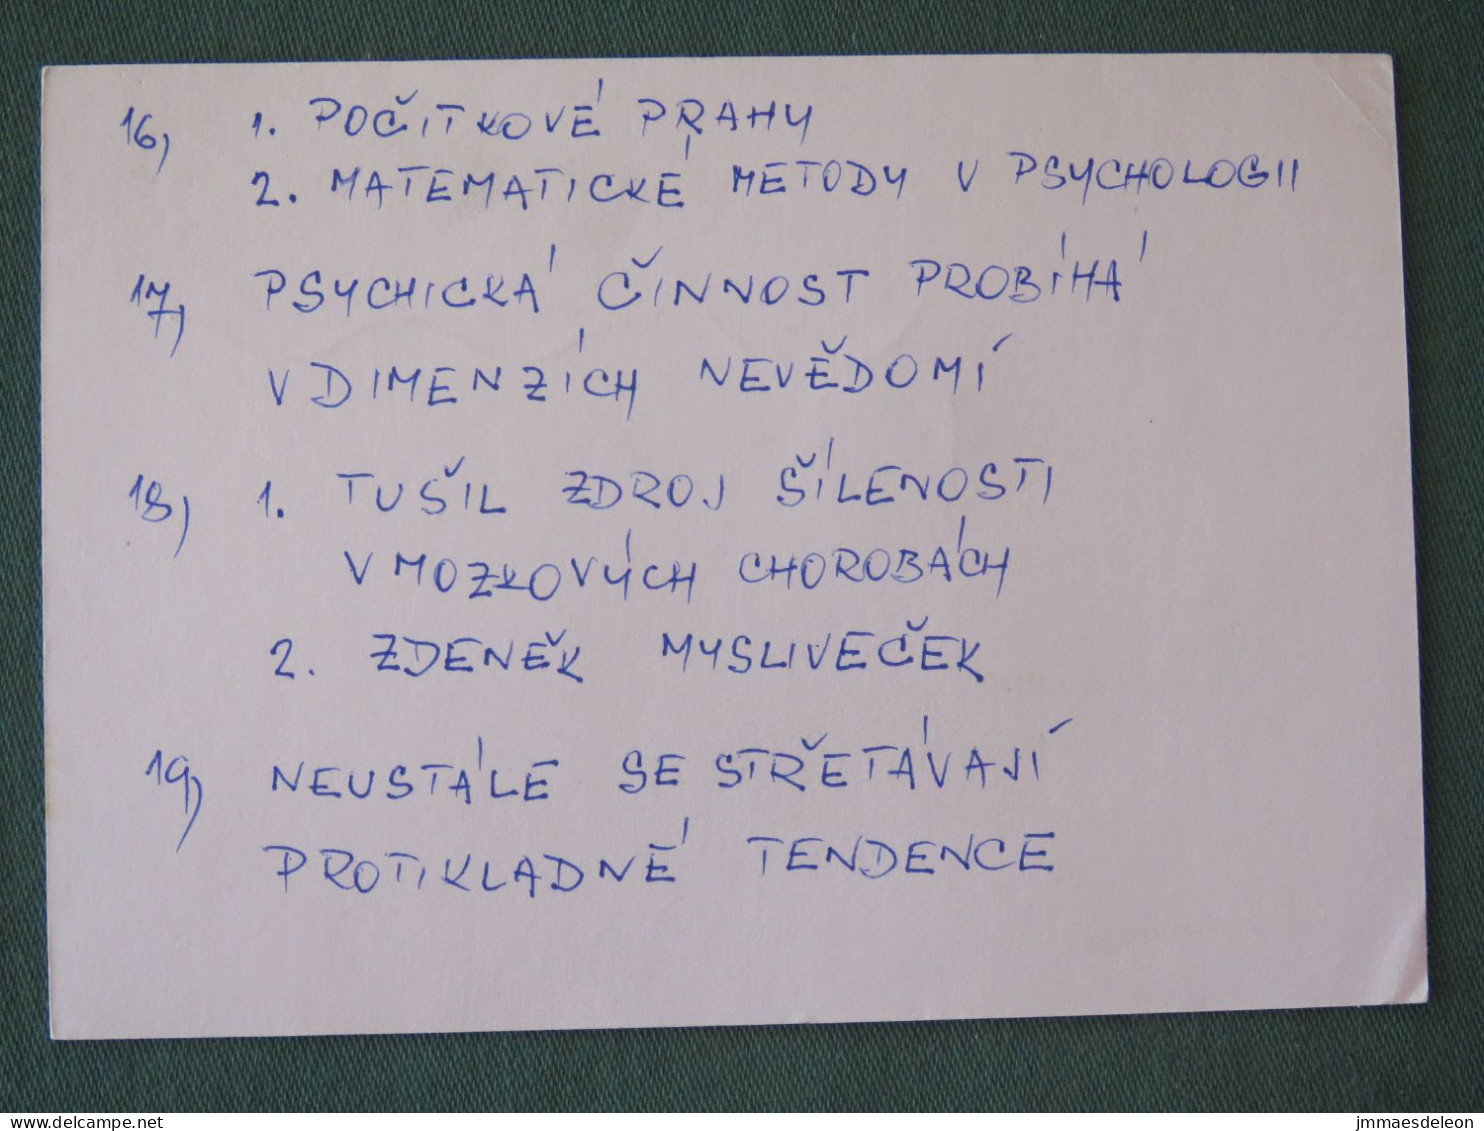 16, 1. POČITKOVÉ PRAHY
2. MATEMATICKÉ METODY V PSYCHOLOGII
17, PSYCHICKÁ ČINNOST PROBÍHÁ
V DIMENZÍCH NEVĚDOMÍ
18, 1. TUŠIL ZDROJ ŠÍLENOSTI
V MOZKOVÝCH CHOROBÁCH
2. ZDENĚK MYSLIVEČEK
19, NEUSTÁLE SE STŘETÁVAJÍ
PROTIKLADNÉ TENDENCE
www.delcampe.net
jmmaesdeleon